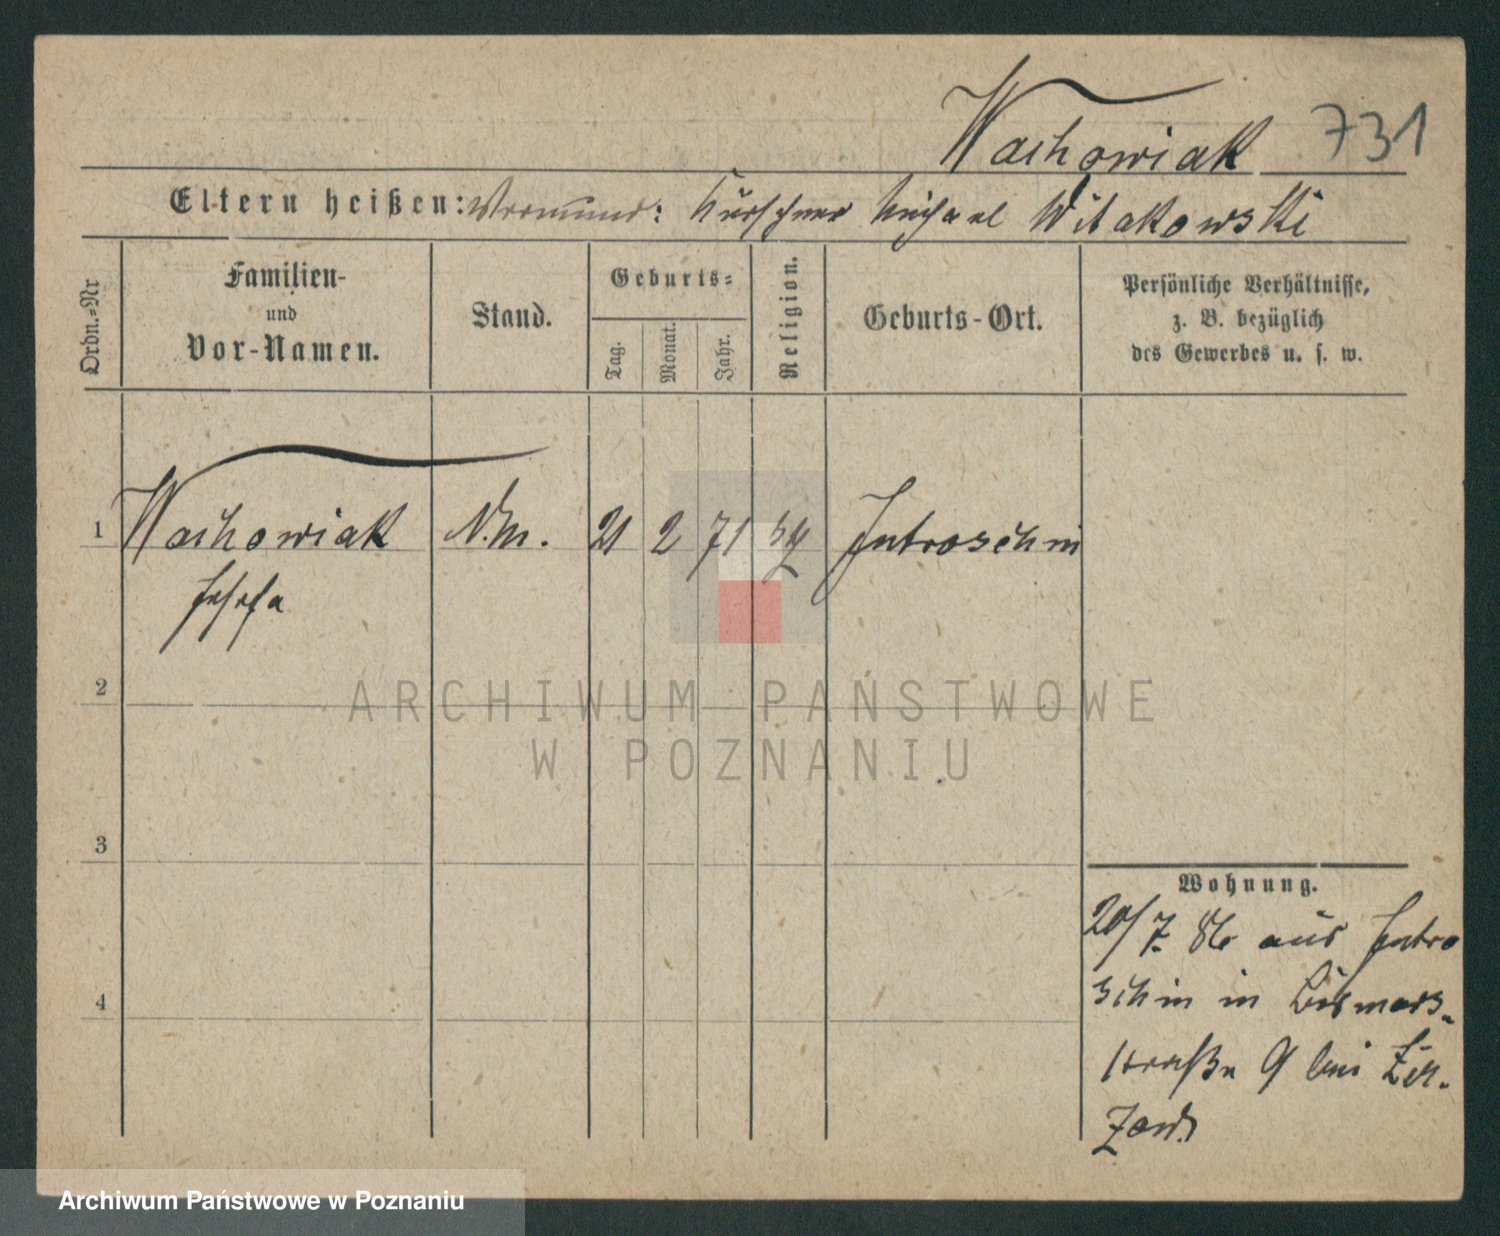 Wachowiak 731
Eltern heißen: Vormund: Kürschner Michael Witakowski
Ordn.=Nr
Familien-
und
Vor-Namen.
Stand.
Geburts=
Tag.
Monat.
Jahr.
Religion.
Geburts-Ort.
Persönliche Verhältnisse,
z. B. bezüglich
des Gewerbes u. s. w.
1 Wachowiak 21 2 71 Jutroschin
Josefa
2
ARCHIWUM PAŃSTWOWE
W POZNANIU
3
Wohnung.
20/7. 86 aus Jutro
schin in Bismars-
straße 9 bei
4
Archiwum Państwowe w Poznaniu